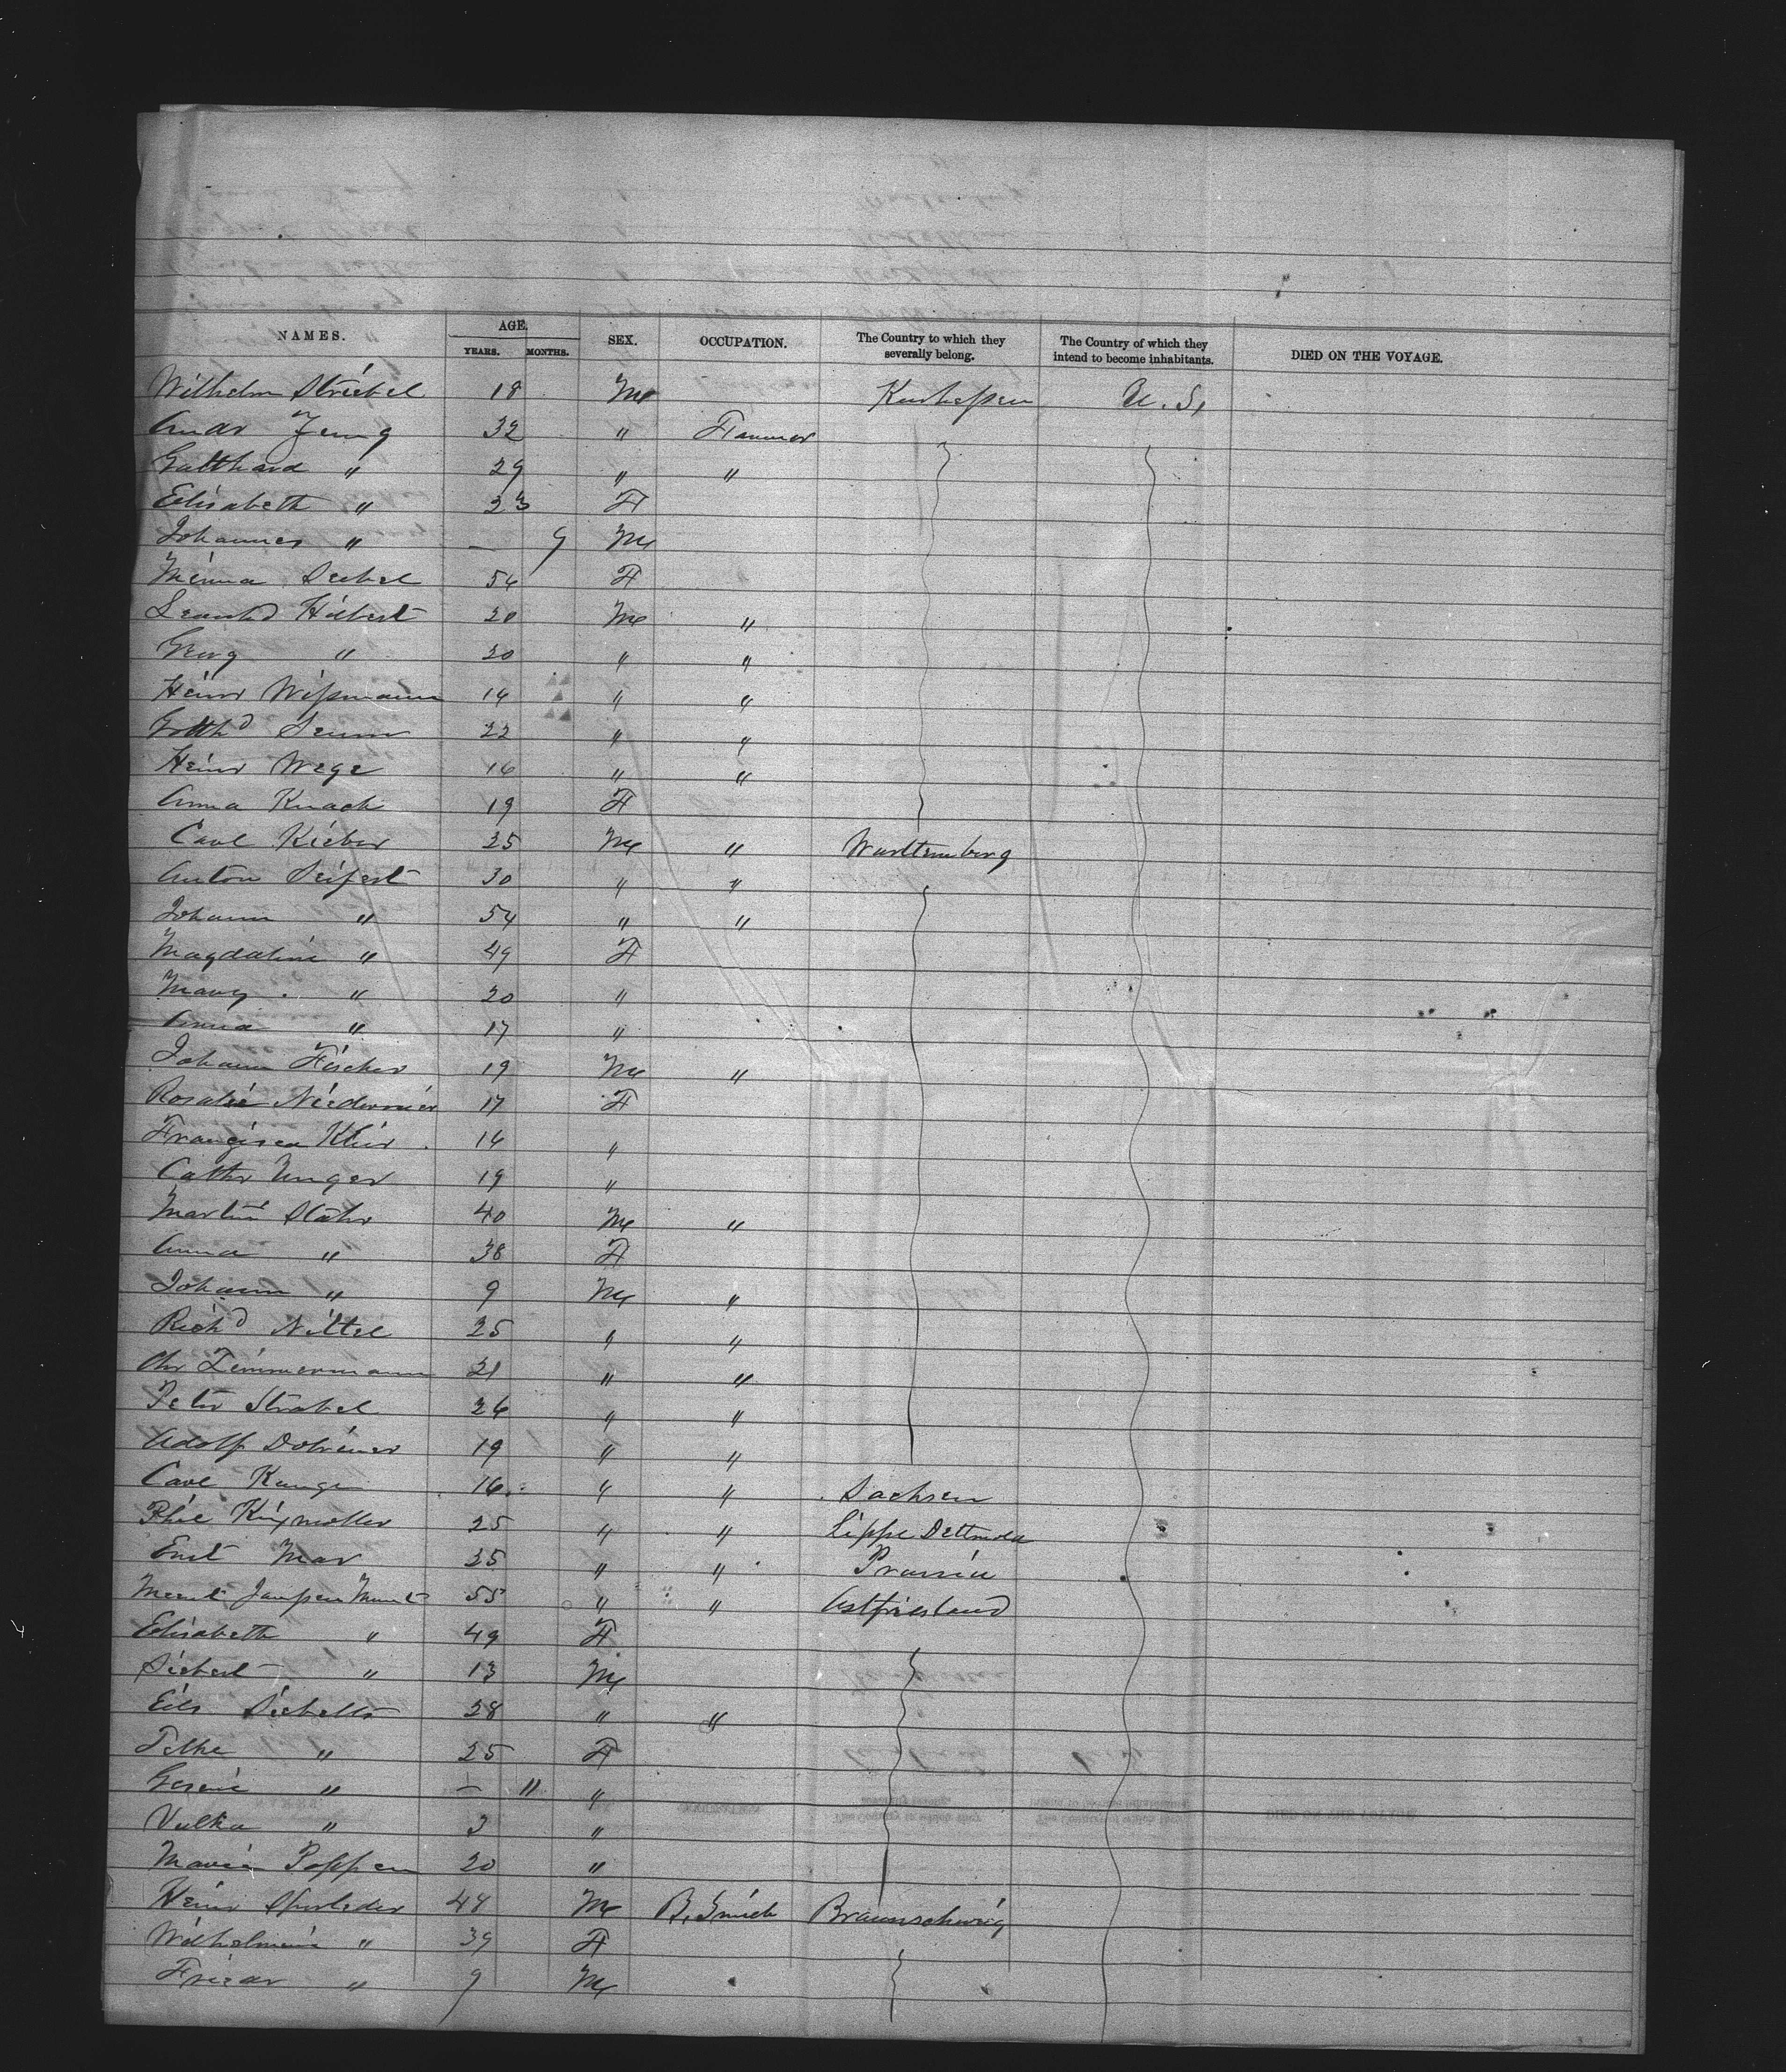 NAMES. AGE. YEARS. MONTHS. SEX. OCCUPATION. The Country to which they severally belong. The Country of which they intend to become inhabitants. DIED ON THE VOYAGE.
Wilhelm Striebel 18 M Kurhessen U. S.
Andr Jung 32 " Farmer
Gotthard " 29 " "
Elisabeth " 23 F
Johannes " — 9 M
Minna Siebel 54 F
Leonhd Hilbert 20 M "
Georg " 20 " "
Heinr Wissmann 14 " "
Gotthd 22 " "
Heinr Wege 16 " "
Anna Knach 19 F
Carl Kieber 25 M " Wurttemberg
Anton Seifert 30 " "
Johann " 54 " "
Magdaline " 49 F
Mary " 20 "
Anna " 17 "
Johann Fischer 19 M "
Rosalie 17 F
Francisca 14 "
Cathr Unger 19 "
Martin Stahr 40 M "
Anna " 38 F
Johann " 9 M "
Richd Nittel 25 " "
Chr Zimmermann 21 " "
Peter Strabel 26 " "
Adolf 19 " "
Carl Kunge 16 " " Sachsen
25 " " Lippe Dettmold
Ernst Mar 25 " "
55 " " Ostfriesland
Elisabeth " 49 F
Siebert " 13 M
Eils Siebelts 28 " "
" 25 F
Gesine " — 11 "
" 3 "
Maria Poppen 20 "
Heinr 48 M B. Smith Braunschweig
Wilhelmine " 39 F
Friedr " 9 M